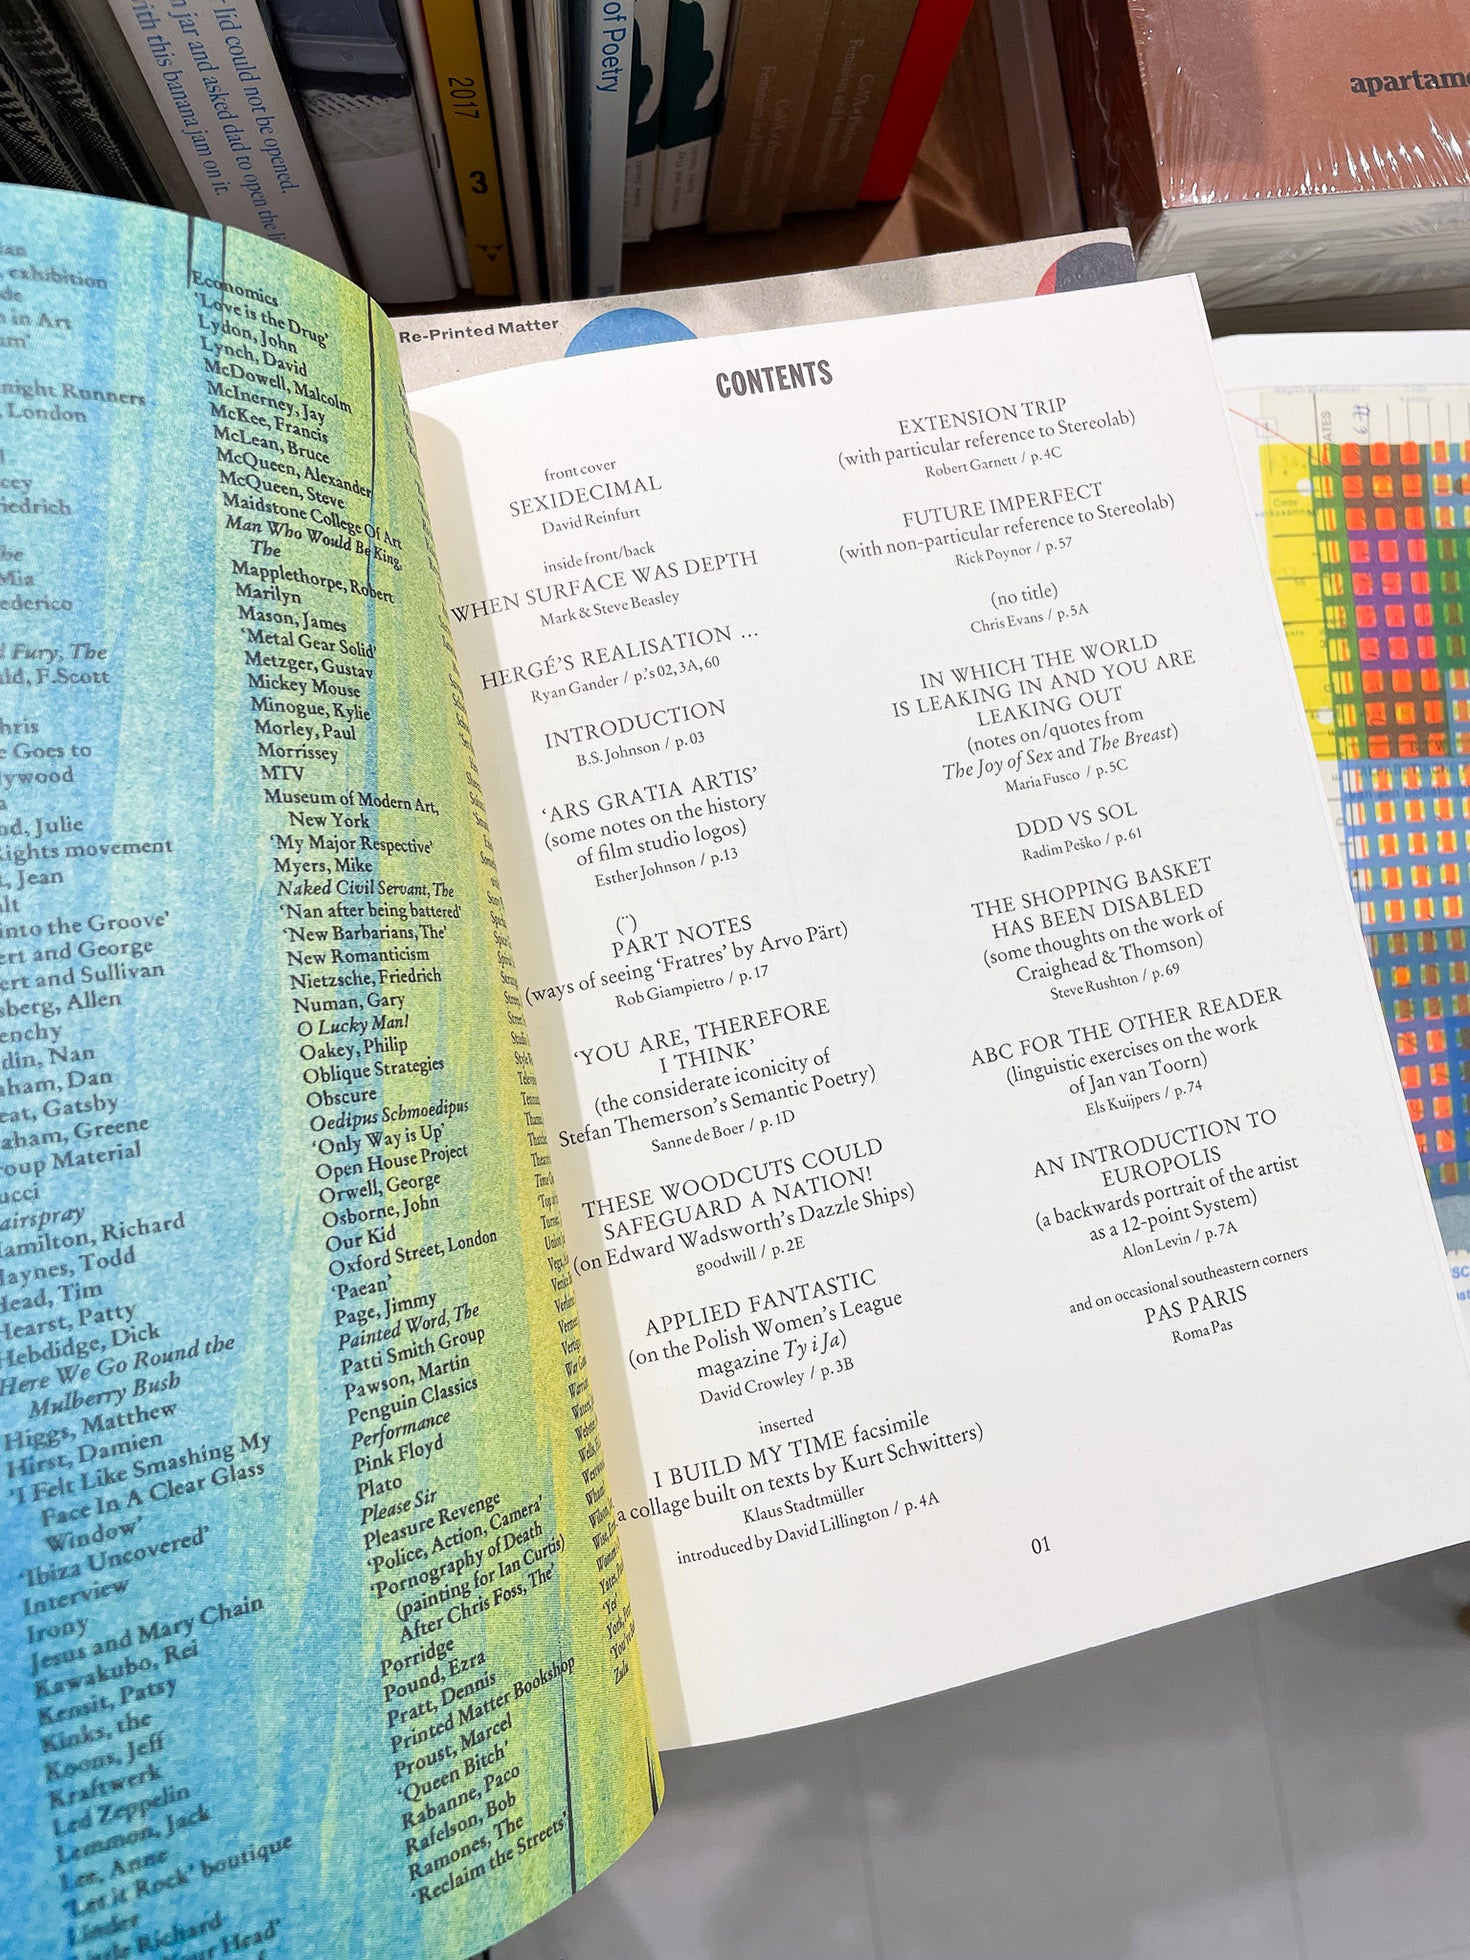 r lid could not be opened.
n jar and asked dad to open the li
with this banana jam on it.
2017
3
of Poetry
Feminism and
apartame
Re-Printed Matter
exhibition
in Art
night Runners
, London
riedrich
Mia
ederico
Fury, The
ald, F. Scott
hris
e Goes to
lywood
nd, Julie
ights movement
, Jean
into the Groove'
ert and George
ert and Sullivan
sberg, Allen
enchy
ldin, Nan
aham, Dan
eat, Gatsby
aham, Greene
roup Material
ucci
airspray
Hamilton, Richard
Haynes, Todd
Head, Tim
Hearst, Patty
Hebdidge, Dick
Here We Go Round the
Mulberry Bush
Higgs, Matthew
Hirst, Damien
'I Felt Like Smashing My
Face In A Clear Glass
Window'
'Ibiza Uncovered'
Interview
Irony
Jesus and Mary Chain
Kawakubo, Rei
Kensit, Patsy
Kinks, the
Koons, Jeff
Kraftwerk
Led Zeppelin
Lemmon, Jack
Lee, Anne
'Let it Rock' boutique
Linder
Little Richard
Your Head'
Economics
'Love is the Drug'
Lydon, John
Lynch, David
McDowell, Malcolm
McInerney, Jay
McKee, Francis
McLean, Bruce
McQueen, Alexander
McQueen, Steve
Maidstone College Of Art
Man Who Would Be King,
The
Mapplethorpe, Robert
Marilyn
Mason, James
'Metal Gear Solid'
Metzger, Gustav
Mickey Mouse
Minogue, Kylie
Morley, Paul
Morrissey
MTV
Museum of Modern Art,
New York
'My Major Respective'
Myers, Mike
Naked Civil Servant, The
'Nan after being battered'
'New Barbarians, The'
New Romanticism
Nietzsche, Friedrich
Numan, Gary
O Lucky Man!
Oakey, Philip
Oblique Strategies
Obscure
Oedipus Schmoedipus
'Only Way is Up'
Open House Project
Orwell, George
Osborne, John
Our Kid
Oxford Street, London
'Paean'
Page, Jimmy
Painted Word, The
Patti Smith Group
Pawson, Martin
Penguin Classics
Performance
Pink Floyd
Plato
Please Sir
Pleasure Revenge
'Police, Action, Camera'
'Pornography of Death
(painting for Ian Curtis)
After Chris Foss, The'
Porridge
Pound, Ezra
Pratt, Dennis
Printed Matter Bookshop
Proust, Marcel
'Queen Bitch'
Rabanne, Paco
Rafelson, Bob
Ramones, The
'Reclaim the Streets'
'Yes'
Zulu
CONTENTS
front cover
SEXIDECIMAL
David Reinfurt
inside front/back
WHEN SURFACE WAS DEPTH
Mark & Steve Beasley
HERGÉ'S REALISATION ...
Ryan Gander / p.'s 02, 3A, 60
INTRODUCTION
B.S. Johnson / p.03
'ARS GRATIA ARTIS'
(some notes on the history
of film studio logos)
Esther Johnson / p.13
(¨)
PART NOTES
(ways of seeing 'Fratres' by Arvo Pärt)
Rob Giampietro / p.17
'YOU ARE, THEREFORE
I THINK'
(the considerate iconicity of
Stefan Themerson's Semantic Poetry)
Sanne de Boer / p.1D
THESE WOODCUTS COULD
SAFEGUARD A NATION!
(on Edward Wadsworth's Dazzle Ships)
goodwill / p.2E
APPLIED FANTASTIC
(on the Polish Women's League
magazine Ty i Ja)
David Crowley / p.3B
inserted
I BUILD MY TIME facsimile
a collage built on texts by Kurt Schwitters)
Klaus Stadtmüller
introduced by David Lillington / p.4A
EXTENSION TRIP
(with particular reference to Stereolab)
Robert Garnett / p.4C
FUTURE IMPERFECT
(with non-particular reference to Stereolab)
Rick Poynor / p.57
(no title)
Chris Evans / p.5A
IN WHICH THE WORLD
IS LEAKING IN AND YOU ARE
LEAKING OUT
(notes on/quotes from
The Joy of Sex and The Breast)
Maria Fusco / p.5C
DDD VS SOL
Radim Peško / p.61
THE SHOPPING BASKET
HAS BEEN DISABLED
(some thoughts on the work of
Craighead & Thomson)
Steve Rushton / p.69
ABC FOR THE OTHER READER
(linguistic exercises on the work
of Jan van Toorn)
Els Kuijpers / p.74
AN INTRODUCTION TO
EUROPOLIS
(a backwards portrait of the artist
as a 12-point System)
Alon Levin / p.7A
and on occasional southeastern corners
PAS PARIS
Roma Pas
01